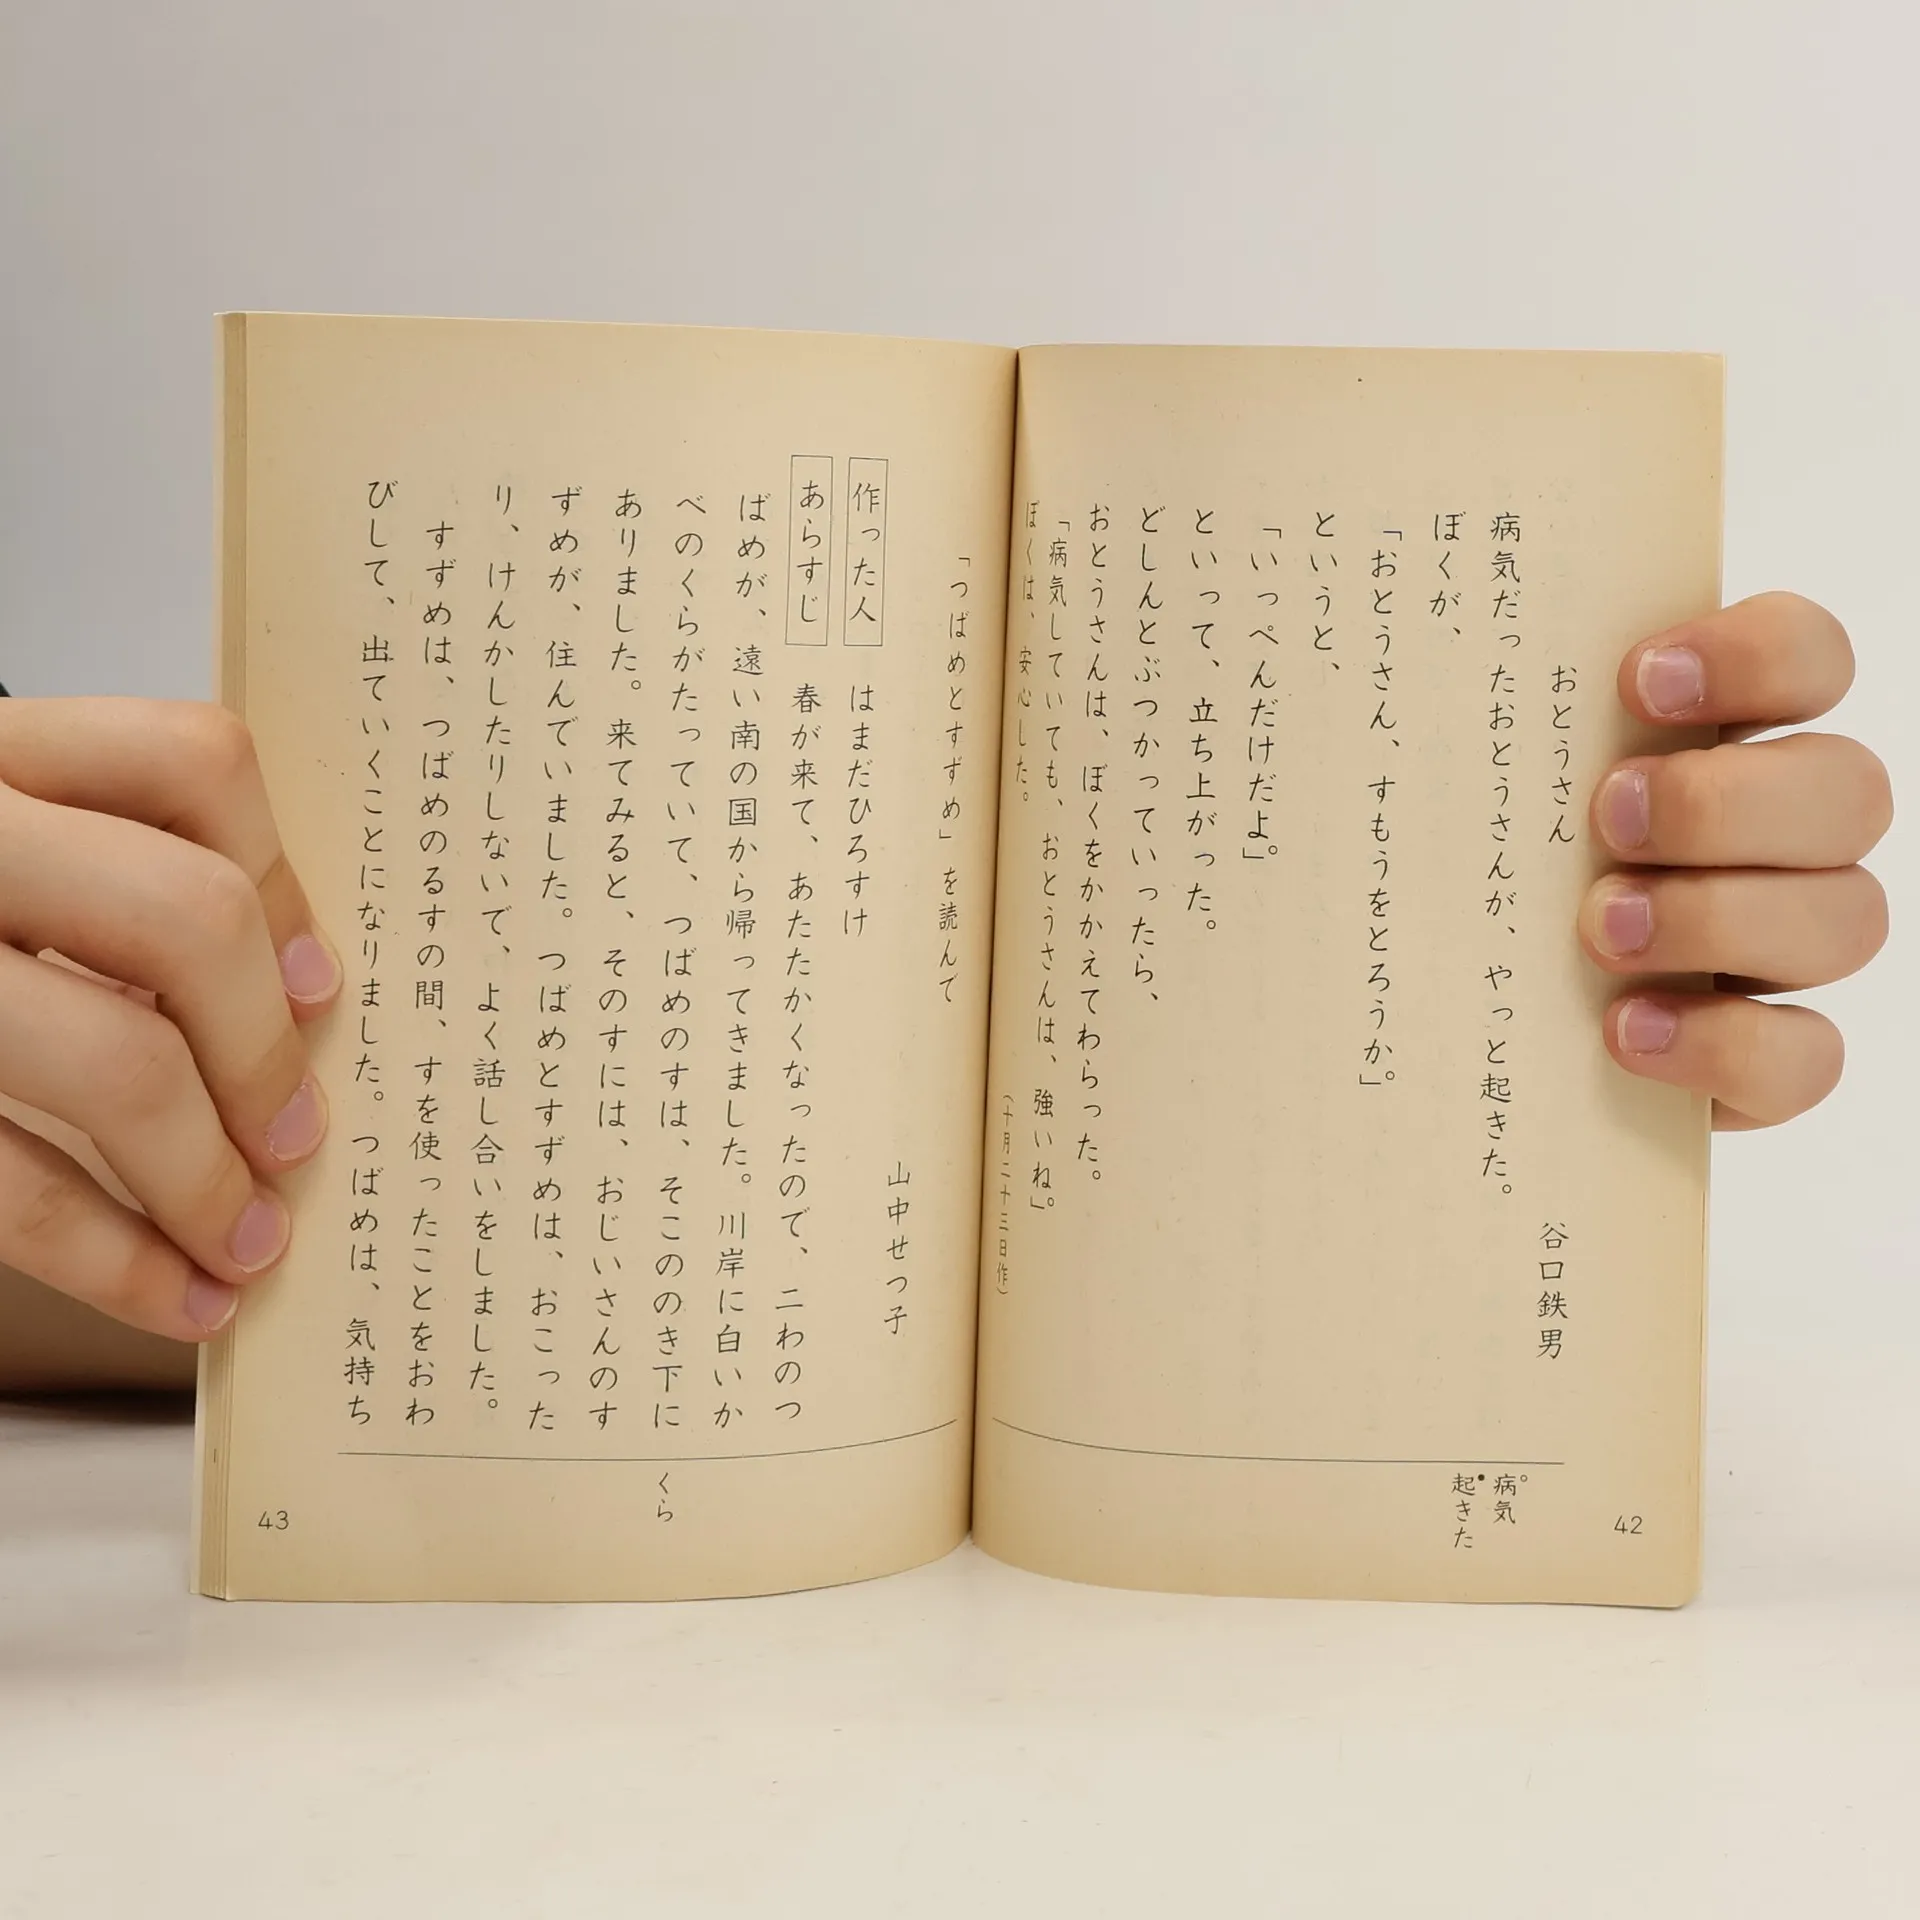 おとうさん
谷口鉄男
病気だったおとうさんが、やっと起きた。
ぼくが、
「おとうさん、すもうをとろうか」。
というと、
「いっぺんだけだよ。」
といって、立ち上がった。
どしんとぶつかっていったら、
おとうさんは、ぼくをかかえてわらった。
「病気していても、おとうさんは、強いね」。
ぼくは、安心した。
(十月二十三日作)
病気
起きた
42
「つばめとすずめ」を読んで
山中せつ子
作った人 はまだひろすけ
あらすじ 春が来て、あたたかくなったので、二わのつ
ばめが、遠い南の国から帰ってきました。川岸に白いか
べのくらがたっていて、つばめのすは、そこののき下に
ありました。来てみると、そのすには、おじいさんのす
ずめが、住んでいました。つばめとすずめは、おこった
り、けんかしたりしないで、よく話し合いをしました。
すずめは、つばめのるすの間、すを使ったことをおわ
びして、出ていくことになりました。つばめは、気持ち
くら
43